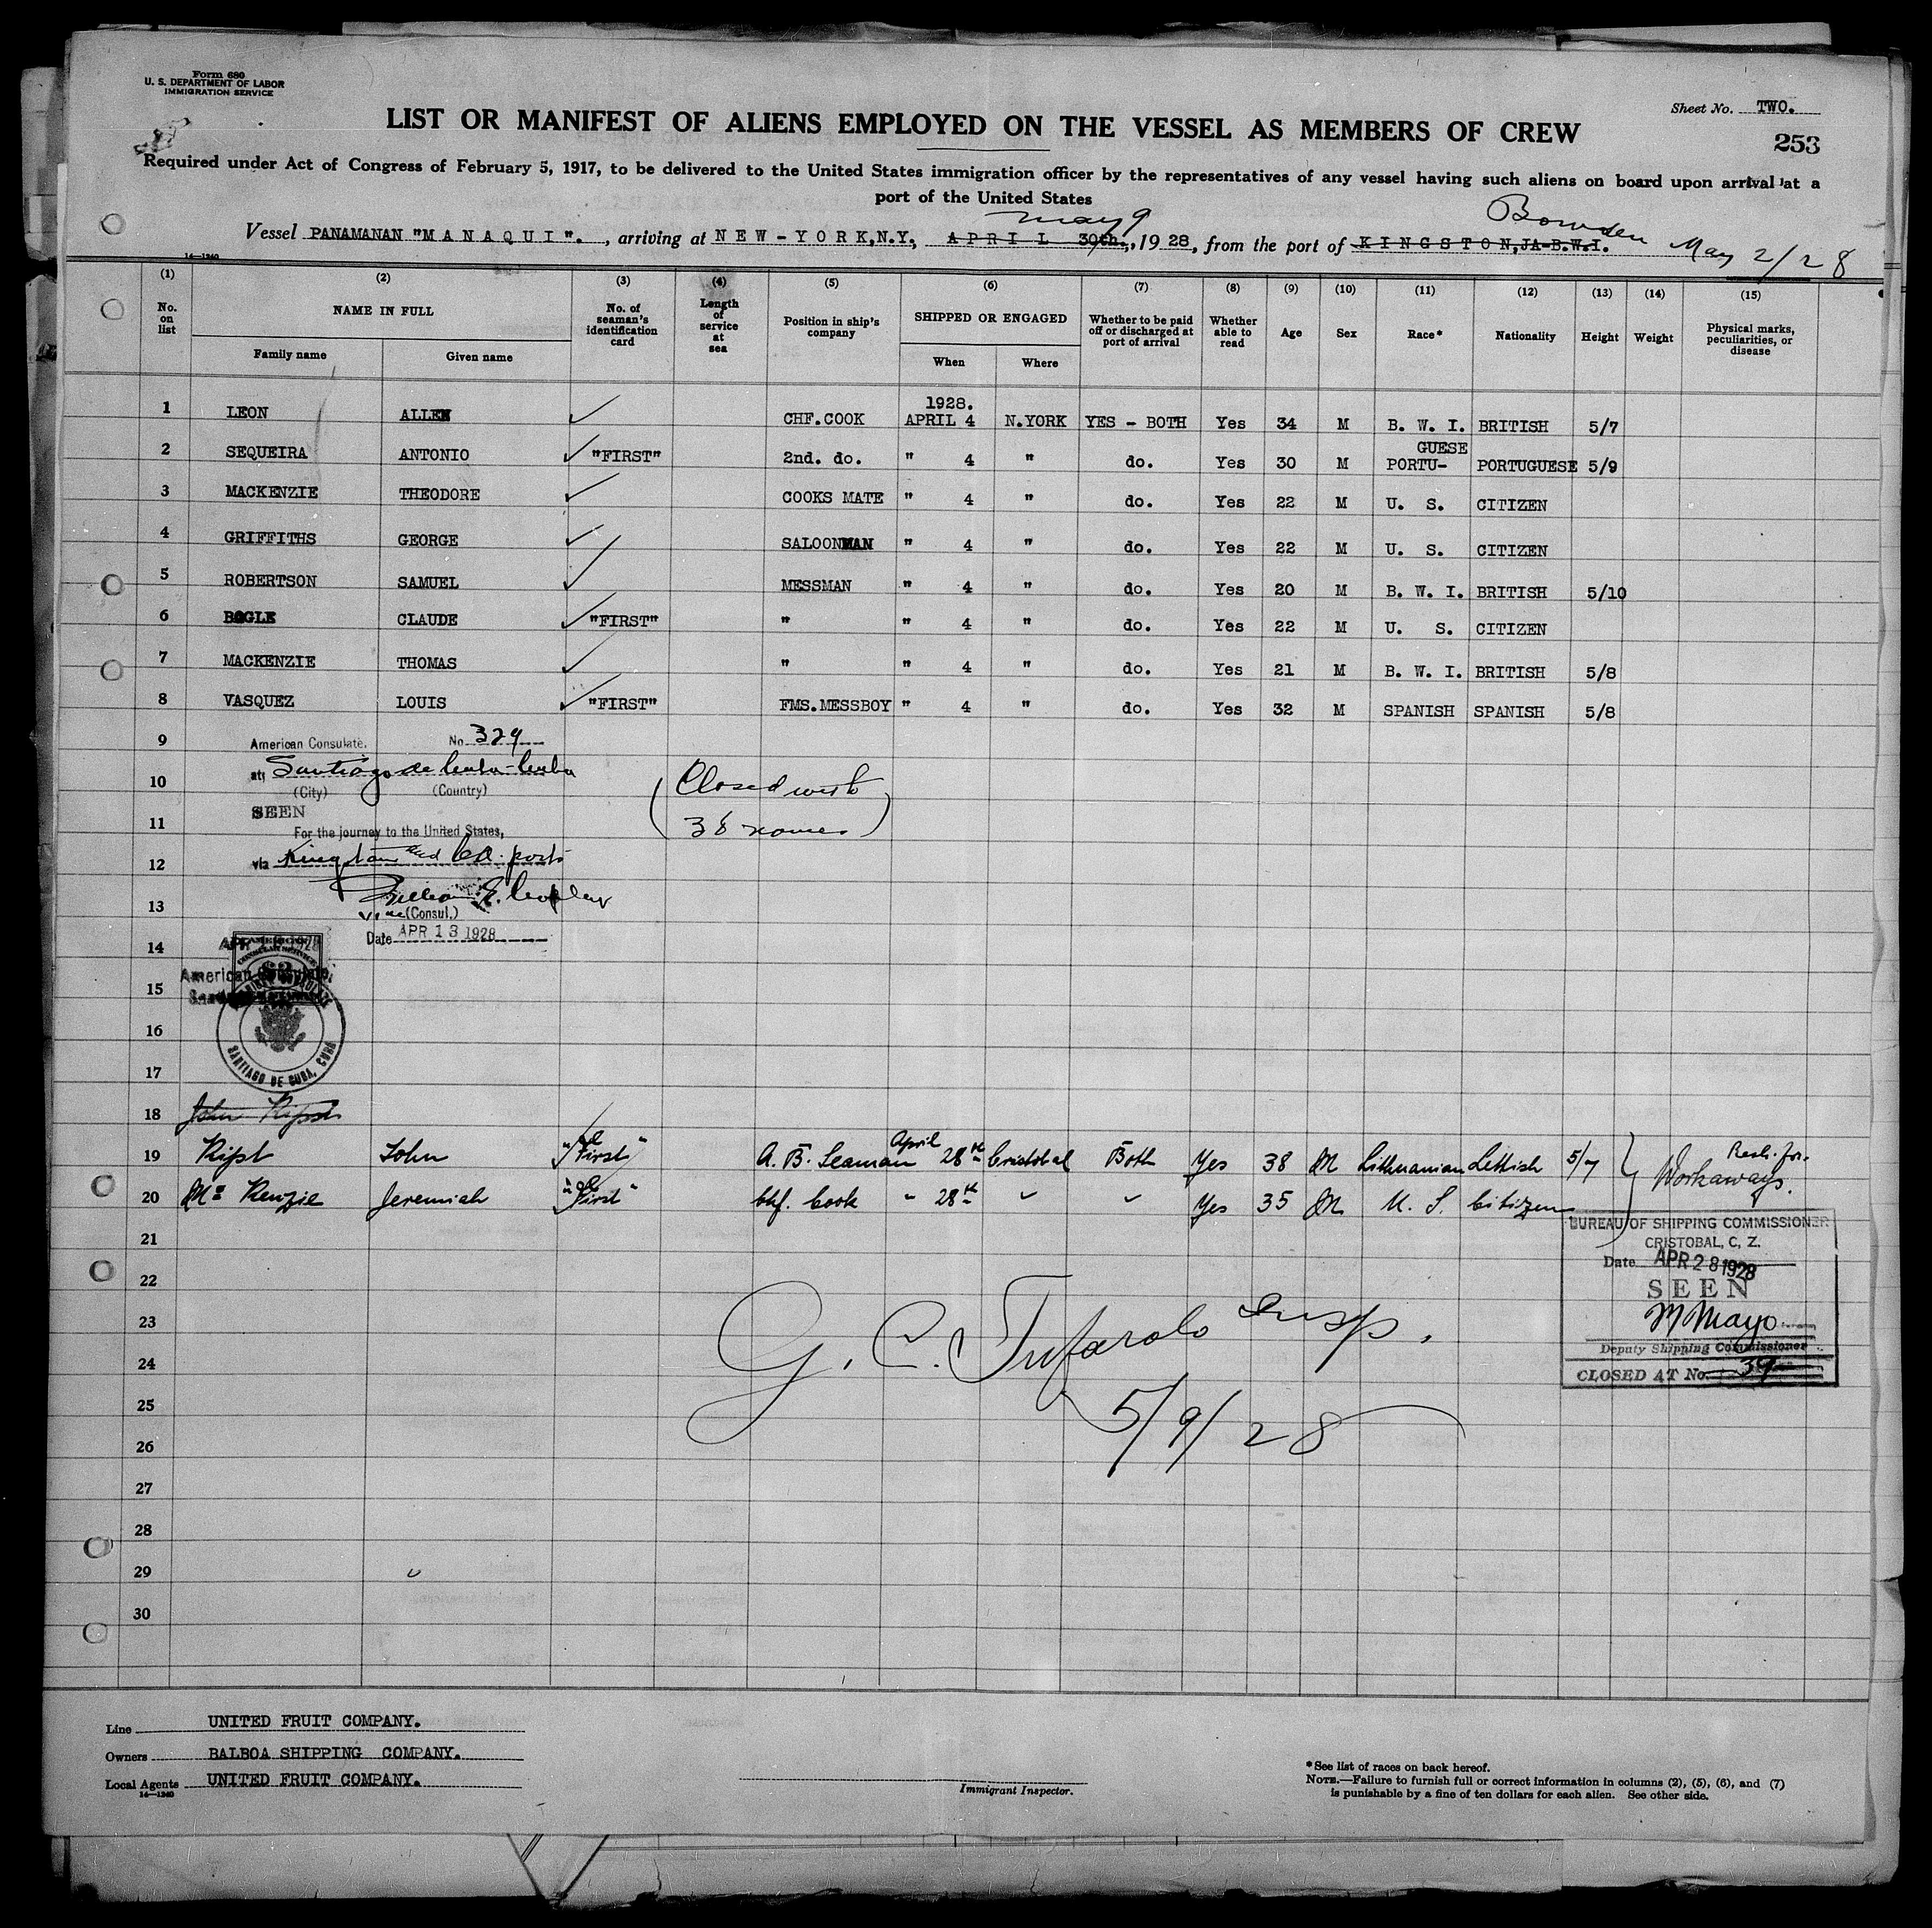 Form 680
U. S. DEPARTMENT OF LABOR
IMMIGRATION SERVICE
Sheet No. TWO.
LIST OR MANIFEST OF ALIENS EMPLOYED ON THE VESSEL AS MEMBERS OF CREW
253
Required under Act of Congress of February 5, 1917, to be delivered to the United States immigration officer by the representatives of any vessel having such aliens on board upon arrival at a
port of the United States
May 9 Bowden
Vessel PANAMANAN "MANAQUI"., arriving at NEW-YORK,N.Y., APRIL 30th., 1928, from the port of KINGSTON,JA-B.W.I. May 2/28
14—1240
(1) (2) (3) (4) (5) (6) (7) (8) (9) (10) (11) (12) (13) (14) (15)
No. on list NAME IN FULL No. of seaman's identification card Length of service at sea Position in ship's company SHIPPED OR ENGAGED Whether to be paid off or discharged at port of arrival Whether able to read Age Sex Race* Nationality Height Weight Physical marks, peculiarities, or disease
Family name Given name When Where
1928.
1 LEON ALLEN ✓ CHF.COOK APRIL 4 N.YORK YES - BOTH Yes 34 M B. W. I. BRITISH 5/7
GUESE
2 SEQUEIRA ANTONIO ✓ "FIRST" 2nd. do. " 4 " do. Yes 30 M PORTU- PORTUGUESE 5/9
3 MACKENZIE THEODORE ✓ COOKS MATE " 4 " do. Yes 22 M U. S. CITIZEN
4 GRIFFITHS GEORGE ✓ SALOONMAN " 4 " do. Yes 22 M U. S. CITIZEN
5 ROBERTSON SAMUEL ✓ MESSMAN " 4 " do. Yes 20 M B. W. I. BRITISH 5/10
6 BOGLE CLAUDE ✓ "FIRST" " " 4 " do. Yes 22 M U. S. CITIZEN
7 MACKENZIE THOMAS ✓ " " 4 " do. Yes 21 M B. W. I. BRITISH 5/8
8 VASQUEZ LOUIS ✓ "FIRST" FMS.MESSBOY " 4 " do. Yes 32 M SPANISH SPANISH 5/8
9 American Consulate. No. 329
at Santiago de Cuba-Cuba
10 (City) (Country) (Closed with
SEEN
11 For the journey to the United States, 38 names)
12 via Kingston and Co. ports
William E.
13 Vice (Consul.)
Date APR 13 1928
14 APR 1928
AMERICAN
CONSULAR SERVICE
$2
American Consulate,
15
16
SANTIAGO DE CUBA, CUBA
17
18 John Ripst
19 Ripst John "First" A. B. Seaman April 28th Cristobal Both Yes 38 M Lithuanian Lettish 5/7
20 Mc Kenzie Jeremiah "First" Chf. Cook " 28th " " Yes 35 M U. S. Citizen
Workaways.
BUREAU OF SHIPPING COMMISSIONER
CRISTOBAL, C. Z.
Date APR 28 1928
SEEN
M Mayo
Deputy Shipping Commissioner
CLOSED AT No. 39
21
22
23
24
G. C. Tufarolo Insp.
5/9/28
25
26
27
28
29
30
Line UNITED FRUIT COMPANY.
Owners BALBOA SHIPPING COMPANY.
Local Agents UNITED FRUIT COMPANY.
14—1240
Immigrant Inspector.
*See list of races on back hereof.
NOTE.—Failure to furnish full or correct information in columns (2), (5), (6), and (7)
is punishable by a fine of ten dollars for each alien. See other side.